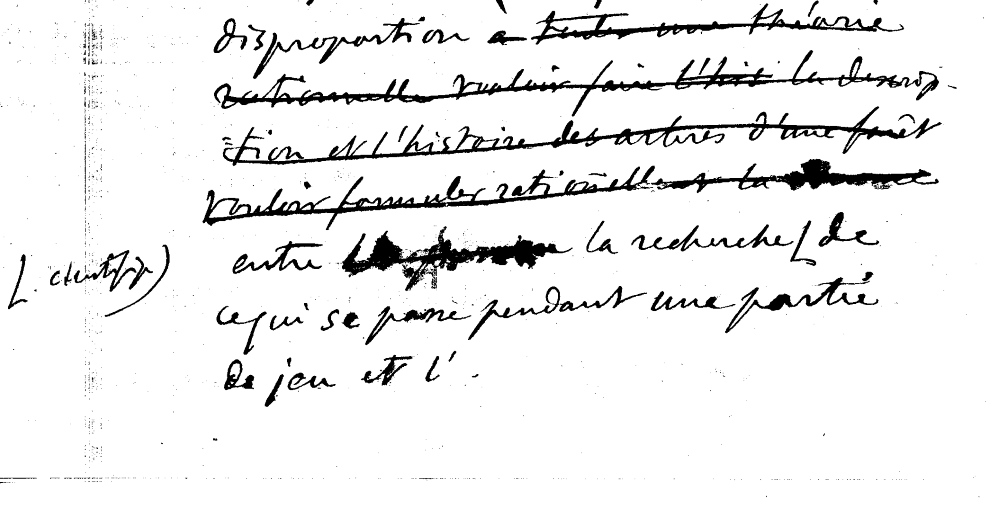 disproportion a toute une théorie
rationnelle vouloir faire l'his la descrip-
tion et l'histoire des arbres d'une forêt
vouloir formuler rationellement la
entre la recherche [de
[scientifique)
ce qui se passe pendant une partie
de jeu et l'.